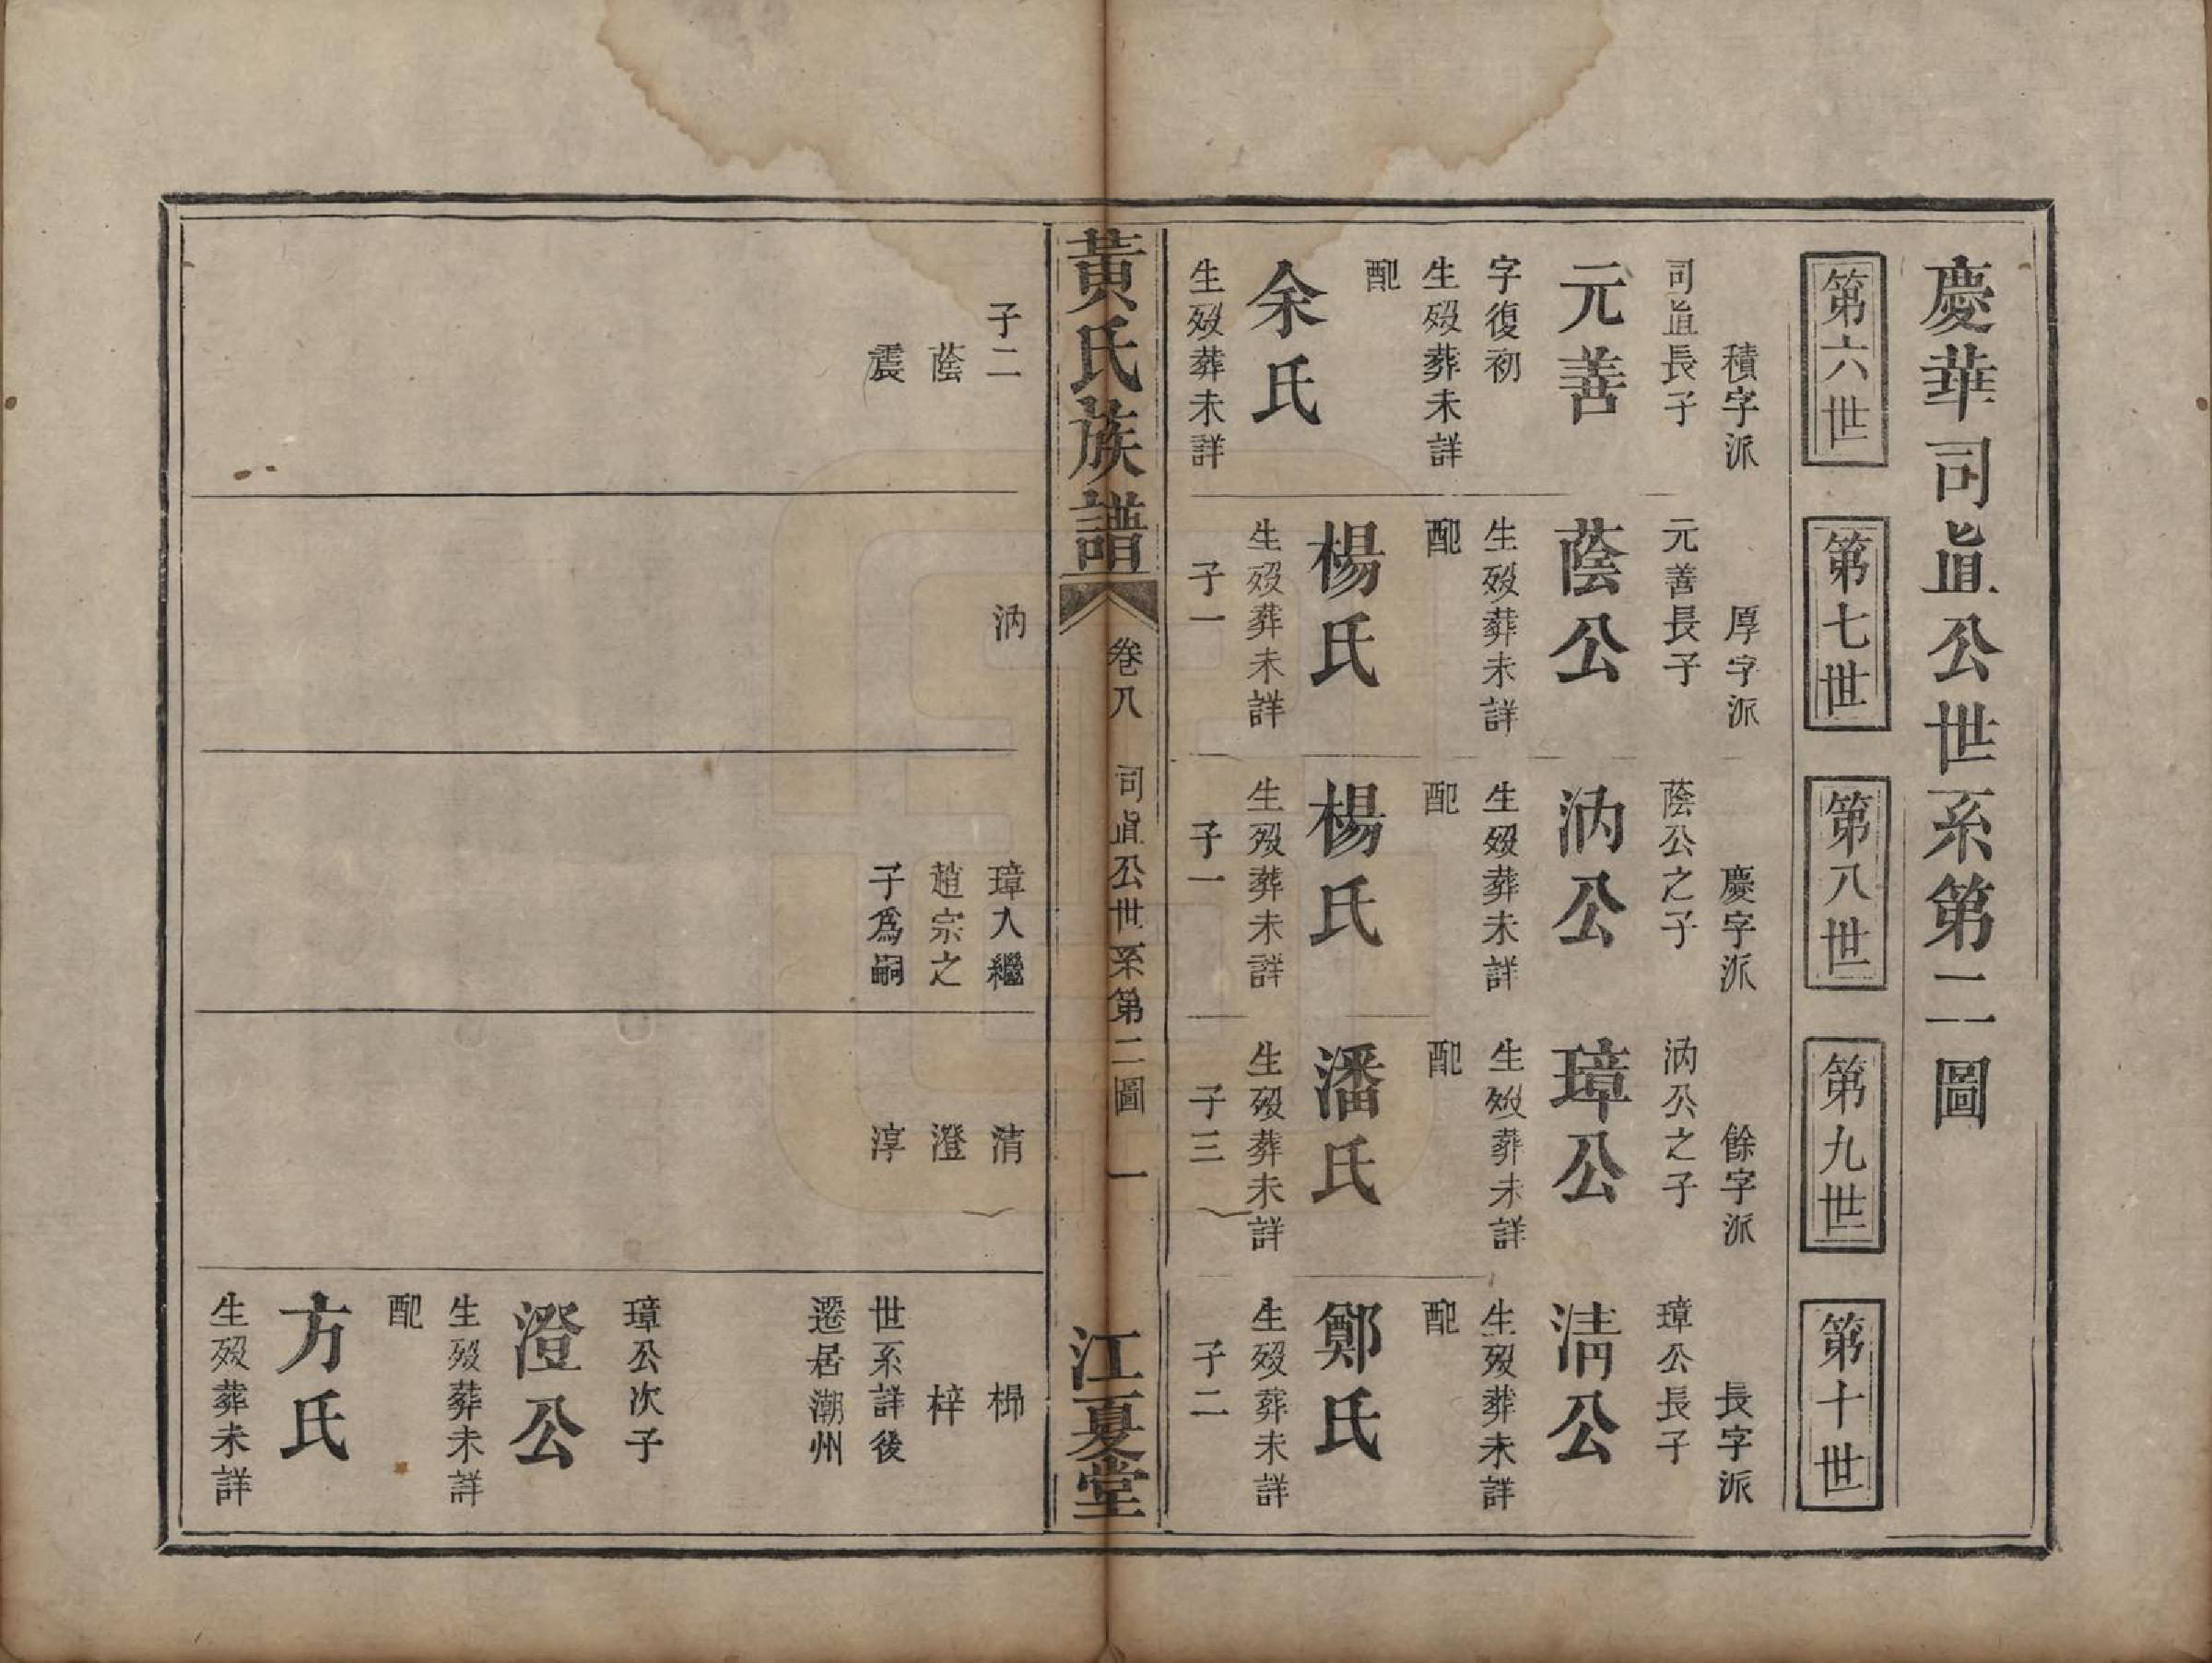 慶華司直公世系第二圖
第六世
第七世
第八世
第九世
第十世
積字派
司直長子
元善
字復初
生歿葬未詳
配
余氏
生歿葬未詳
厚字派
元善長子
蔭公
生歿葬未詳
配
楊氏
生歿葬未詳
子一
慶字派
蔭公之子
汭公
生歿葬未詳
配
楊氏
生歿葬未詳
子一
餘字派
汭公之子
璋公
生歿葬未詳
配
潘氏
生歿葬未詳
子三
長字派
璋公長子
清公
生歿葬未詳
配
鄭氏
生歿葬未詳
子二
黃氏族譜
卷八
司直公世系第二圖
一
江夏堂
子二
蔭
震
汭
璋入繼
趙宗之
子為嗣
清
澄
淳
梓
世系詳後
遷居潮州
璋公次子
澄公
生歿葬未詳
配
方氏
生歿葬未詳